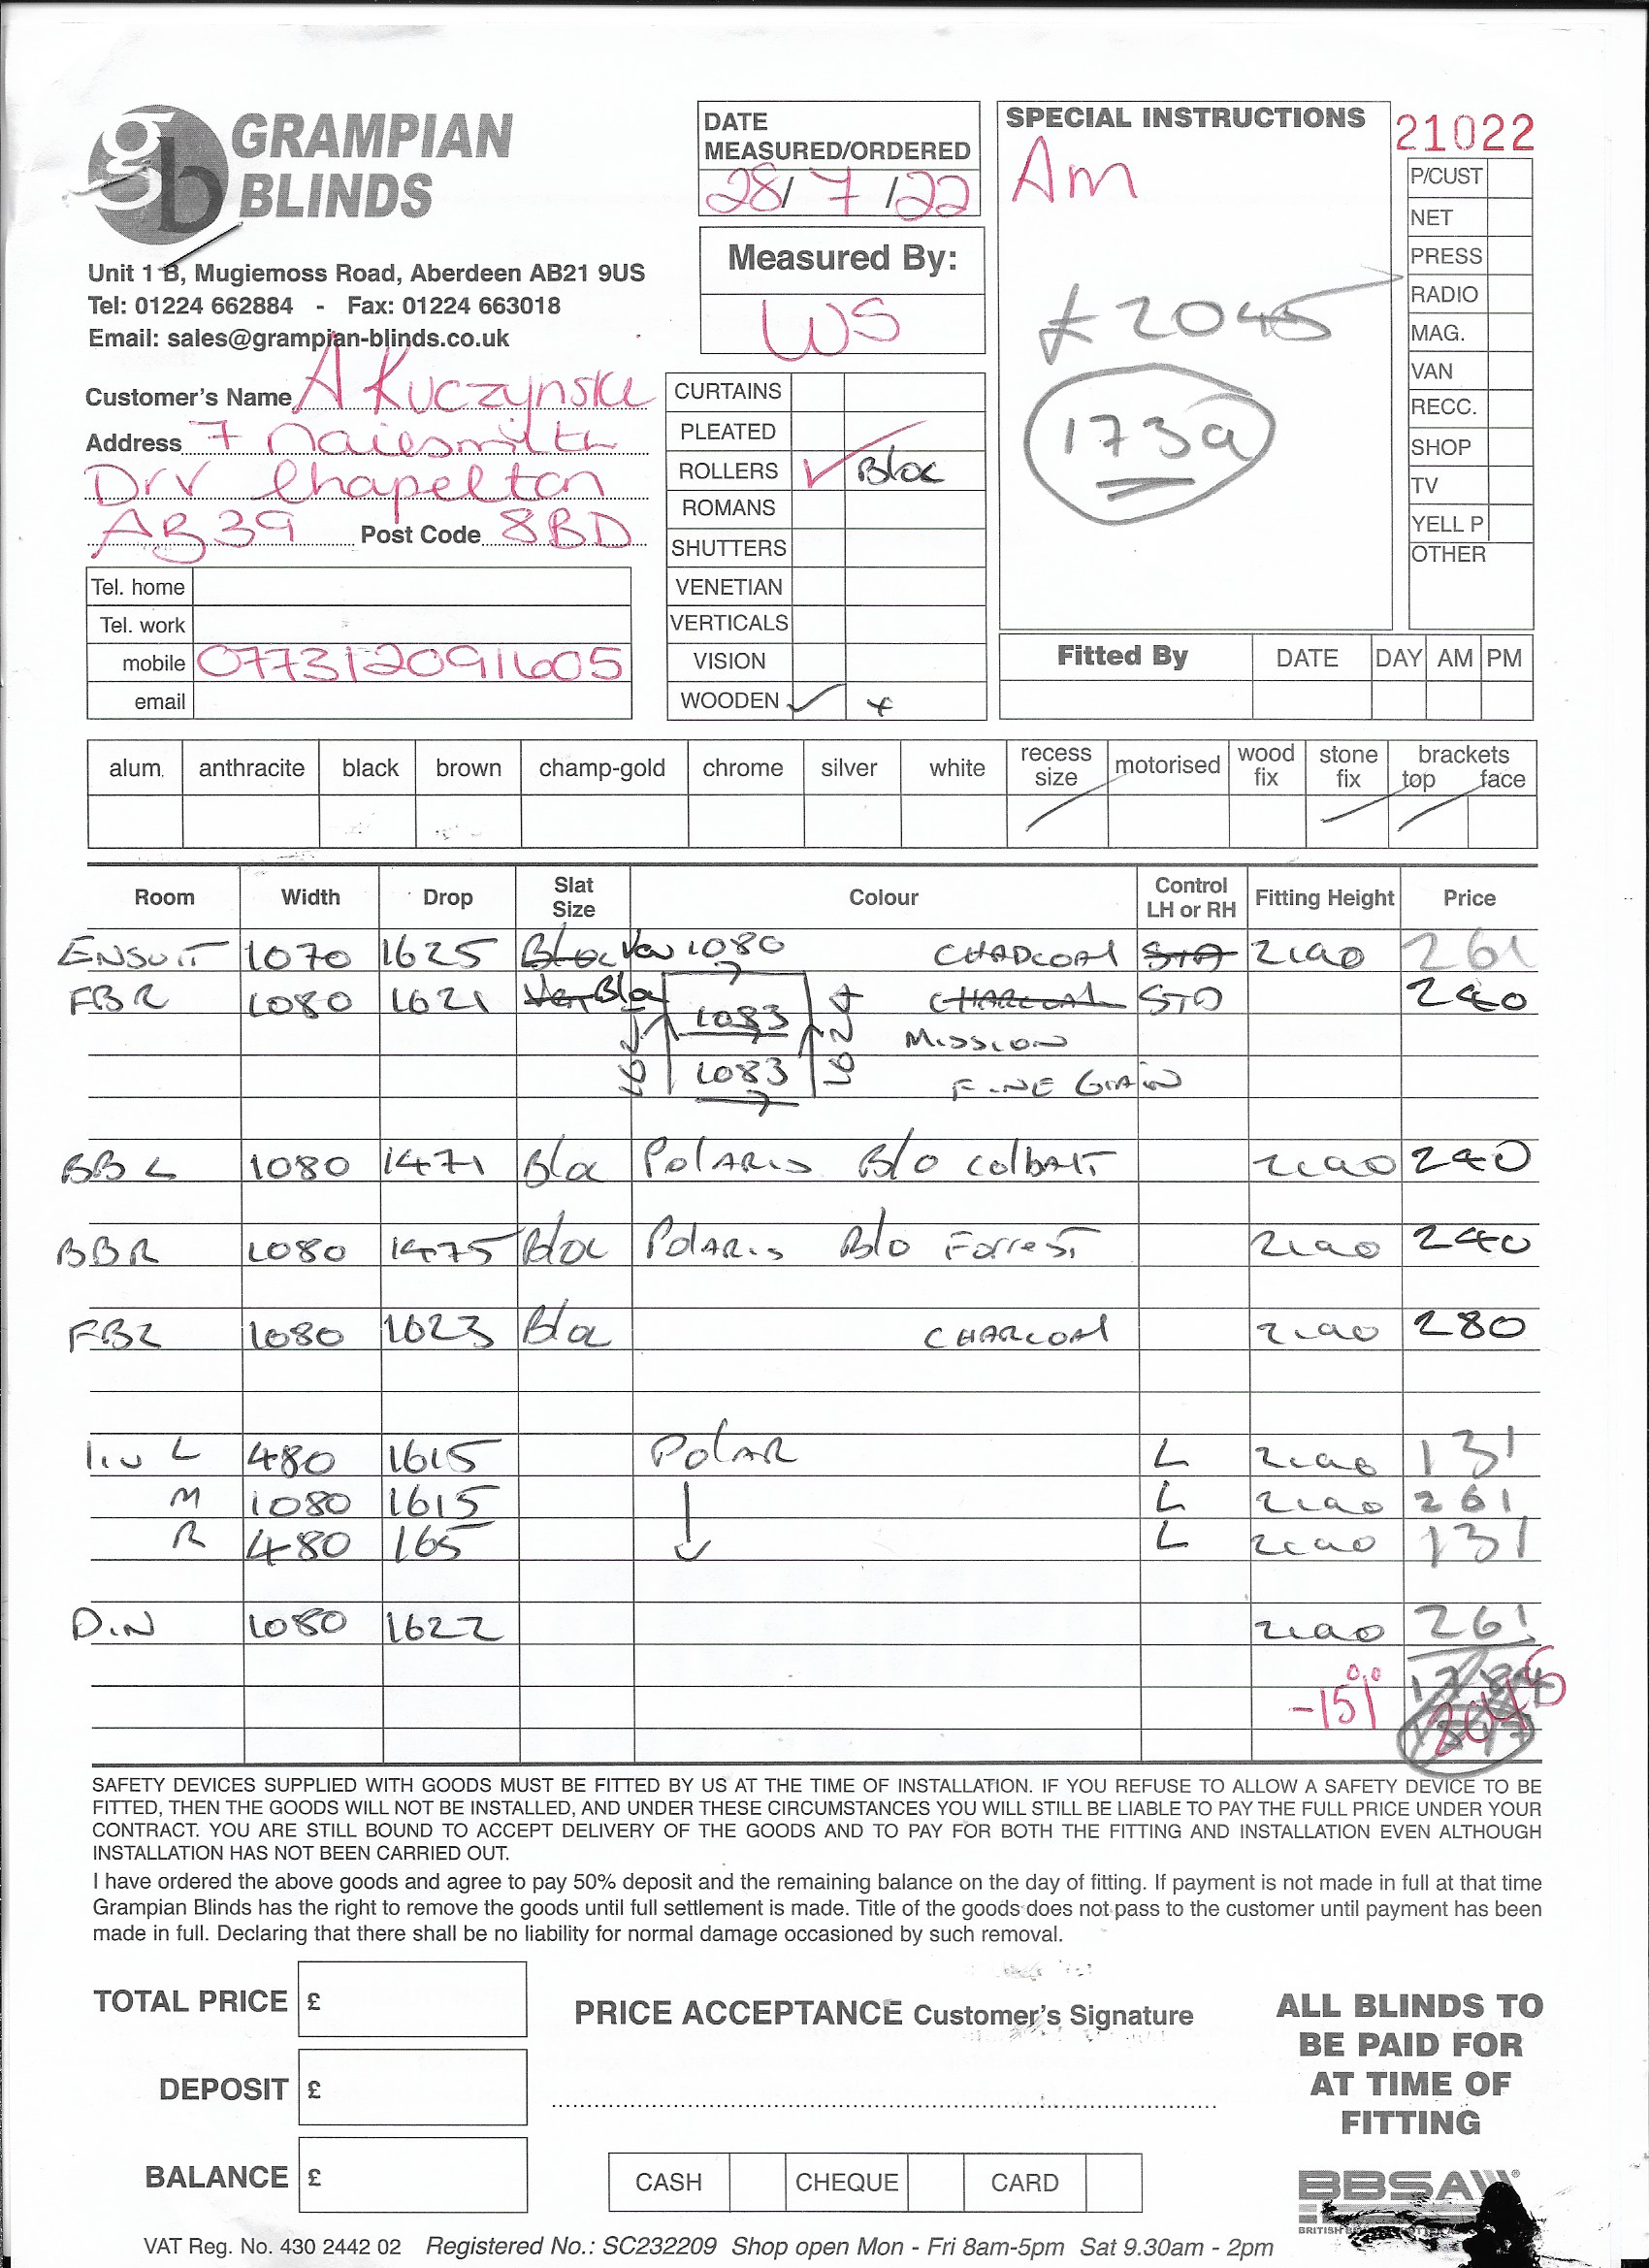 GRAMPIAN
BLINDS
Unit 1 B, Mugiemoss Road, Aberdeen AB21 9US
Tel: 01224 662884 - Fax: 01224 663018
Email: sales@grampian-blinds.co.uk
DATE
MEASURED/ORDERED
28/7/22
Measured By:
WS
SPECIAL INSTRUCTIONS
Am
£2045
1739
21022
P/CUST
NET
PRESS
RADIO
MAG.
VAN
RECC.
SHOP
TV
YELL P
OTHER
Customer's Name A Kuczynski
Address 7
Drv Chapelton
AB39 Post Code 8BD
Tel. home
Tel. work
mobile 077312091605
email
CURTAINS
PLEATED
ROLLERS Bloc
ROMANS
SHUTTERS
VENETIAN
VERTICALS
VISION
WOODEN
Fitted By DATE DAY AM PM
alum. anthracite black brown champ-gold chrome silver white recess size motorised wood fix stone fix brackets top face
Room Width Drop Slat Size Colour Control LH or RH Fitting Height Price
ENSUIT 1070 1625 Ven 1080 CHADCOAL 2100 261
FBR 1080 1621 Bloc 1083 CHARCOAL STD 240
MISSION
1083 FINE GRAIN
BBL 1080 1471 Bloc POLARIS B/O COLBALT 2100 240
BBR 1080 1475 Bloc POLARIS B/O FORREST 2100 240
FBL 1080 1623 Bloc CHARCOAL 2100 280
Liv L 480 1615 POLAR L 2100 131
M 1080 1615 L 2100 261
R 480 165 L 2100 131
DIN 1080 1622 2100 261
-15% 2045
SAFETY DEVICES SUPPLIED WITH GOODS MUST BE FITTED BY US AT THE TIME OF INSTALLATION. IF YOU REFUSE TO ALLOW A SAFETY DEVICE TO BE
FITTED, THEN THE GOODS WILL NOT BE INSTALLED, AND UNDER THESE CIRCUMSTANCES YOU WILL STILL BE LIABLE TO PAY THE FULL PRICE UNDER YOUR
CONTRACT. YOU ARE STILL BOUND TO ACCEPT DELIVERY OF THE GOODS AND TO PAY FOR BOTH THE FITTING AND INSTALLATION EVEN ALTHOUGH
INSTALLATION HAS NOT BEEN CARRIED OUT.
I have ordered the above goods and agree to pay 50% deposit and the remaining balance on the day of fitting. If payment is not made in full at that time
Grampian Blinds has the right to remove the goods until full settlement is made. Title of the goods does not pass to the customer until payment has been
made in full. Declaring that there shall be no liability for normal damage occasioned by such removal.
TOTAL PRICE £
PRICE ACCEPTANCE Customer's Signature
DEPOSIT £
BALANCE £
CASH CHEQUE CARD
ALL BLINDS TO
BE PAID FOR
AT TIME OF
FITTING
BBSA
BRITISH
VAT Reg. No. 430 2442 02 Registered No.: SC232209 Shop open Mon - Fri 8am-5pm Sat 9.30am - 2pm